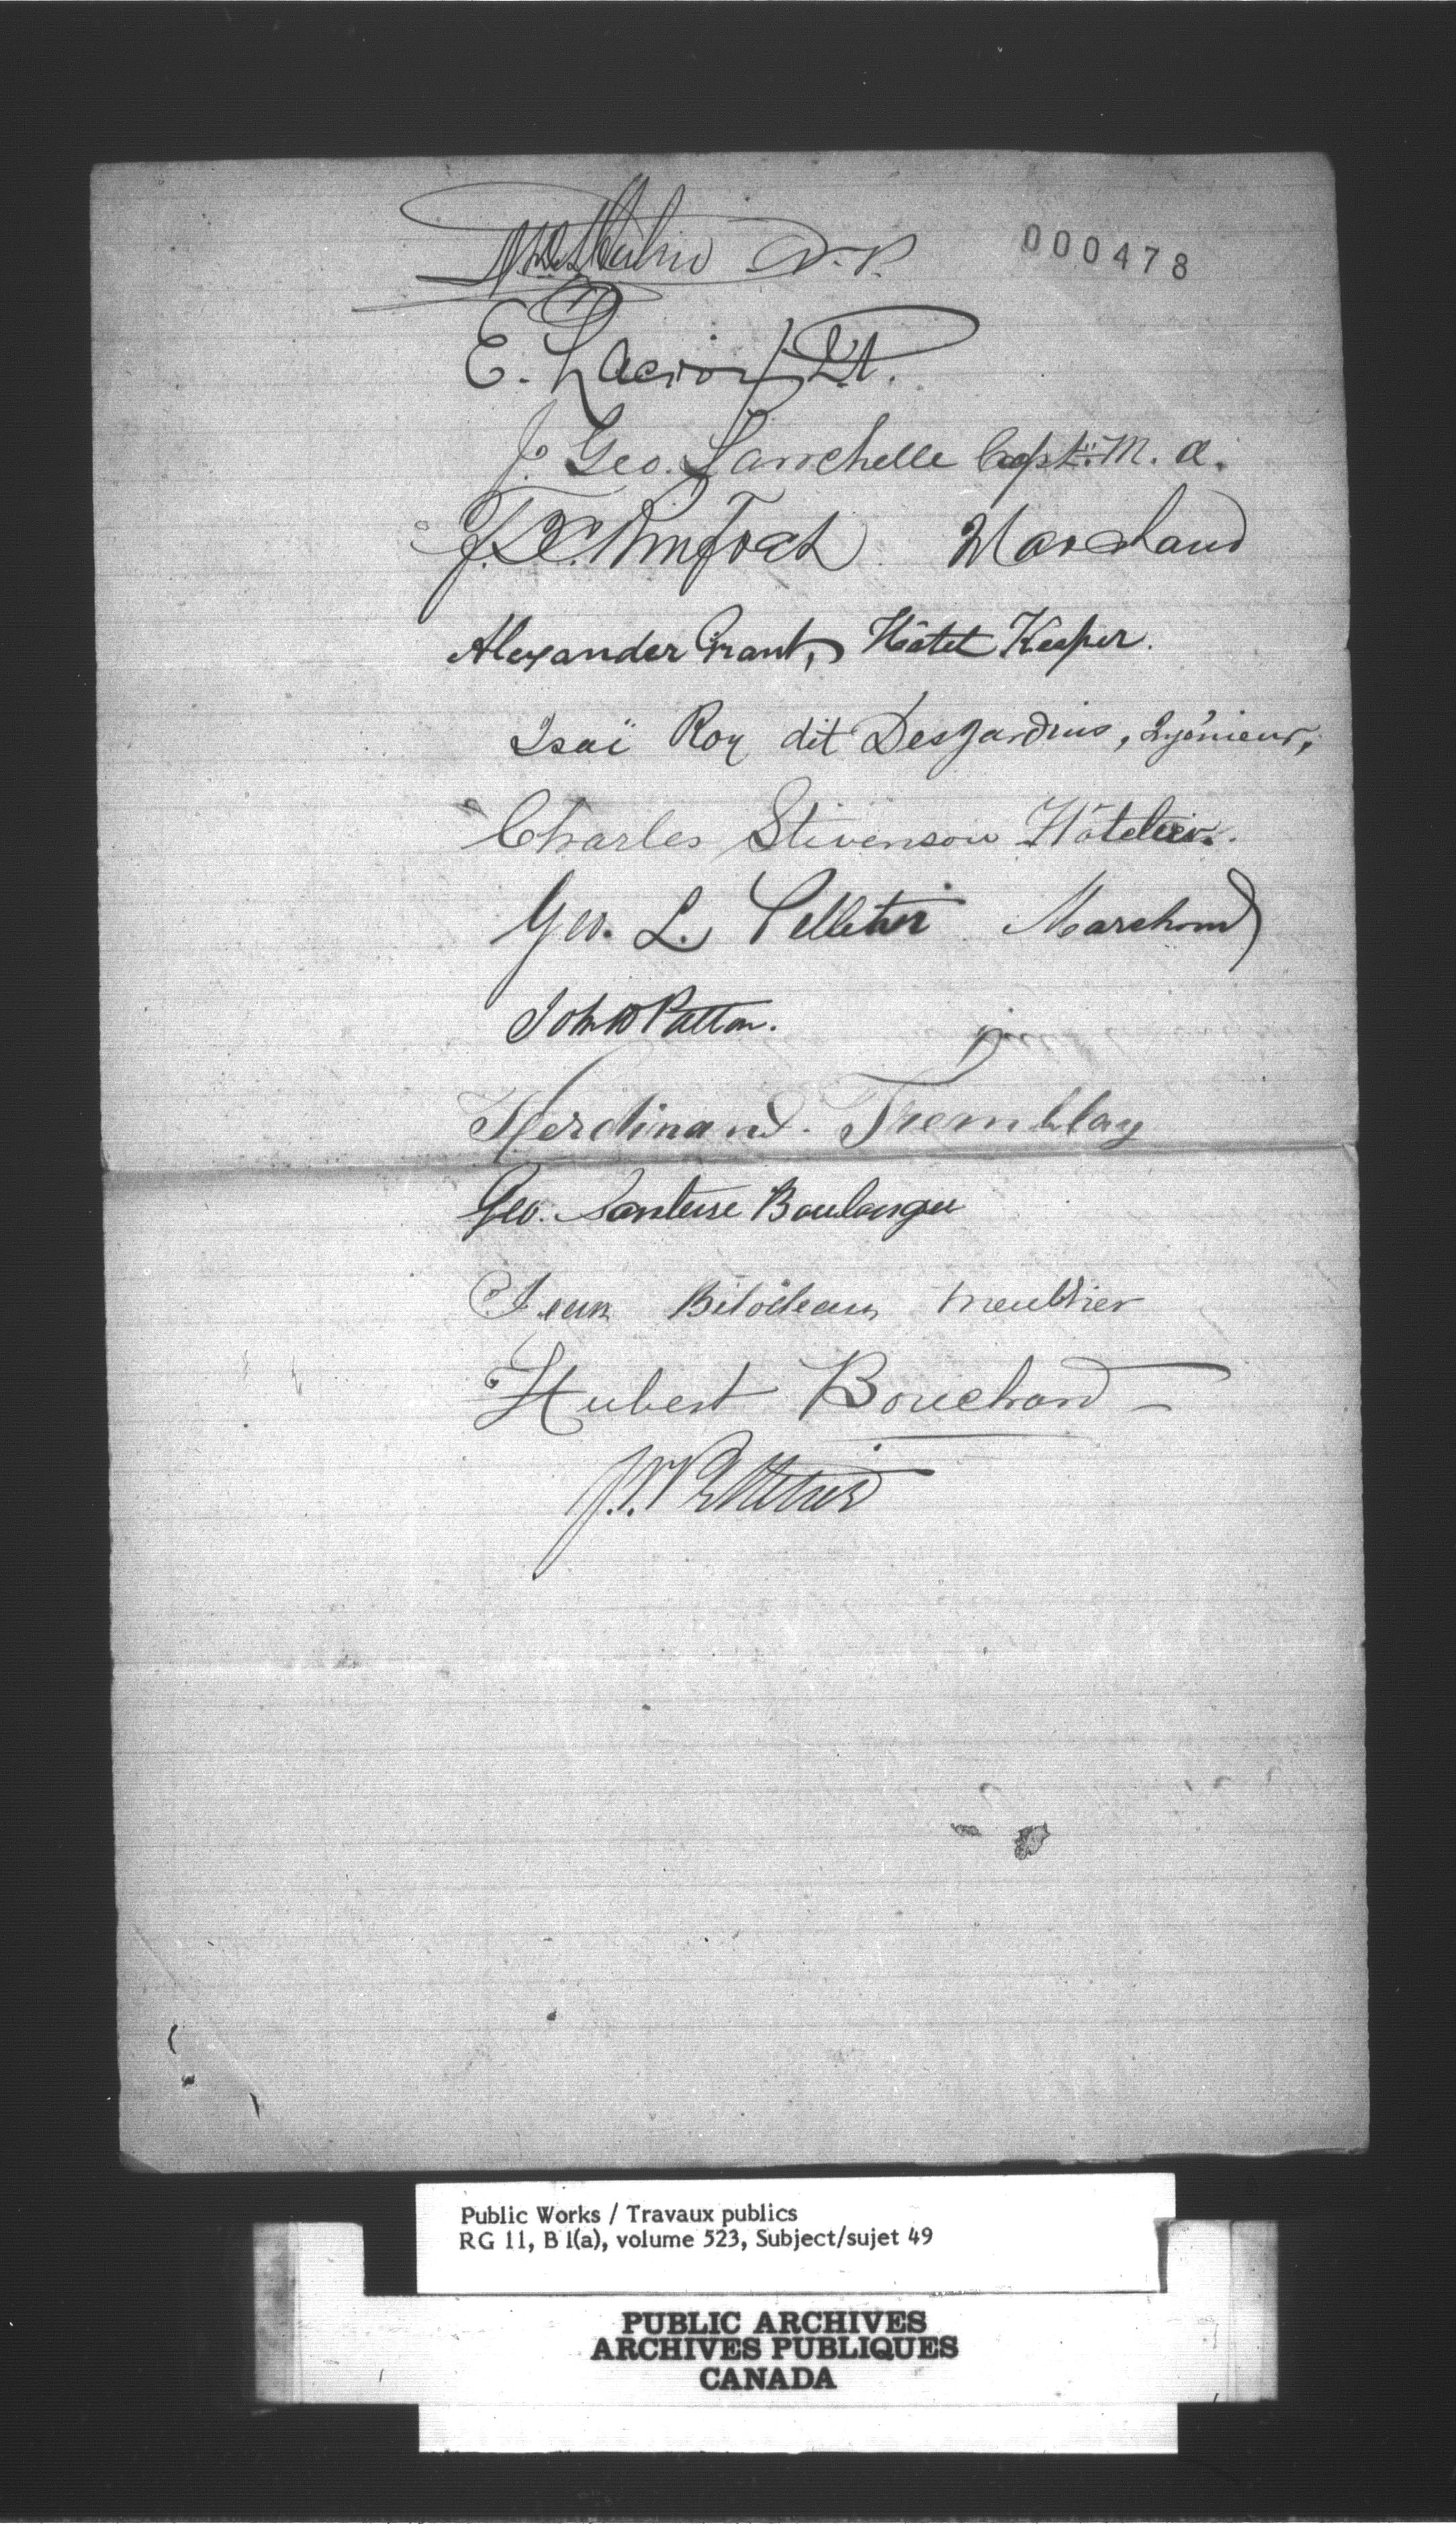 N.P.
000478
E. Lacroix
J. Geo. Larochelle Capt. M. A.
Marchand
Alexander Grant, Hôtel Keeper.
Isaï Roy dit DesJardins, Ingénieur,
Charles Stivenson Hôtelier.
Geo. L. Pelletier Marchand
John Patton.
Ferdinand. Tremblay
Geo. Santerre Boulanger
Jean Bilodeau meublier
Hubert Bouchard
Public Works / Travaux publics
RG 11, B 1(a), volume 523, Subject/sujet 49
PUBLIC ARCHIVES
ARCHIVES PUBLIQUES
CANADA